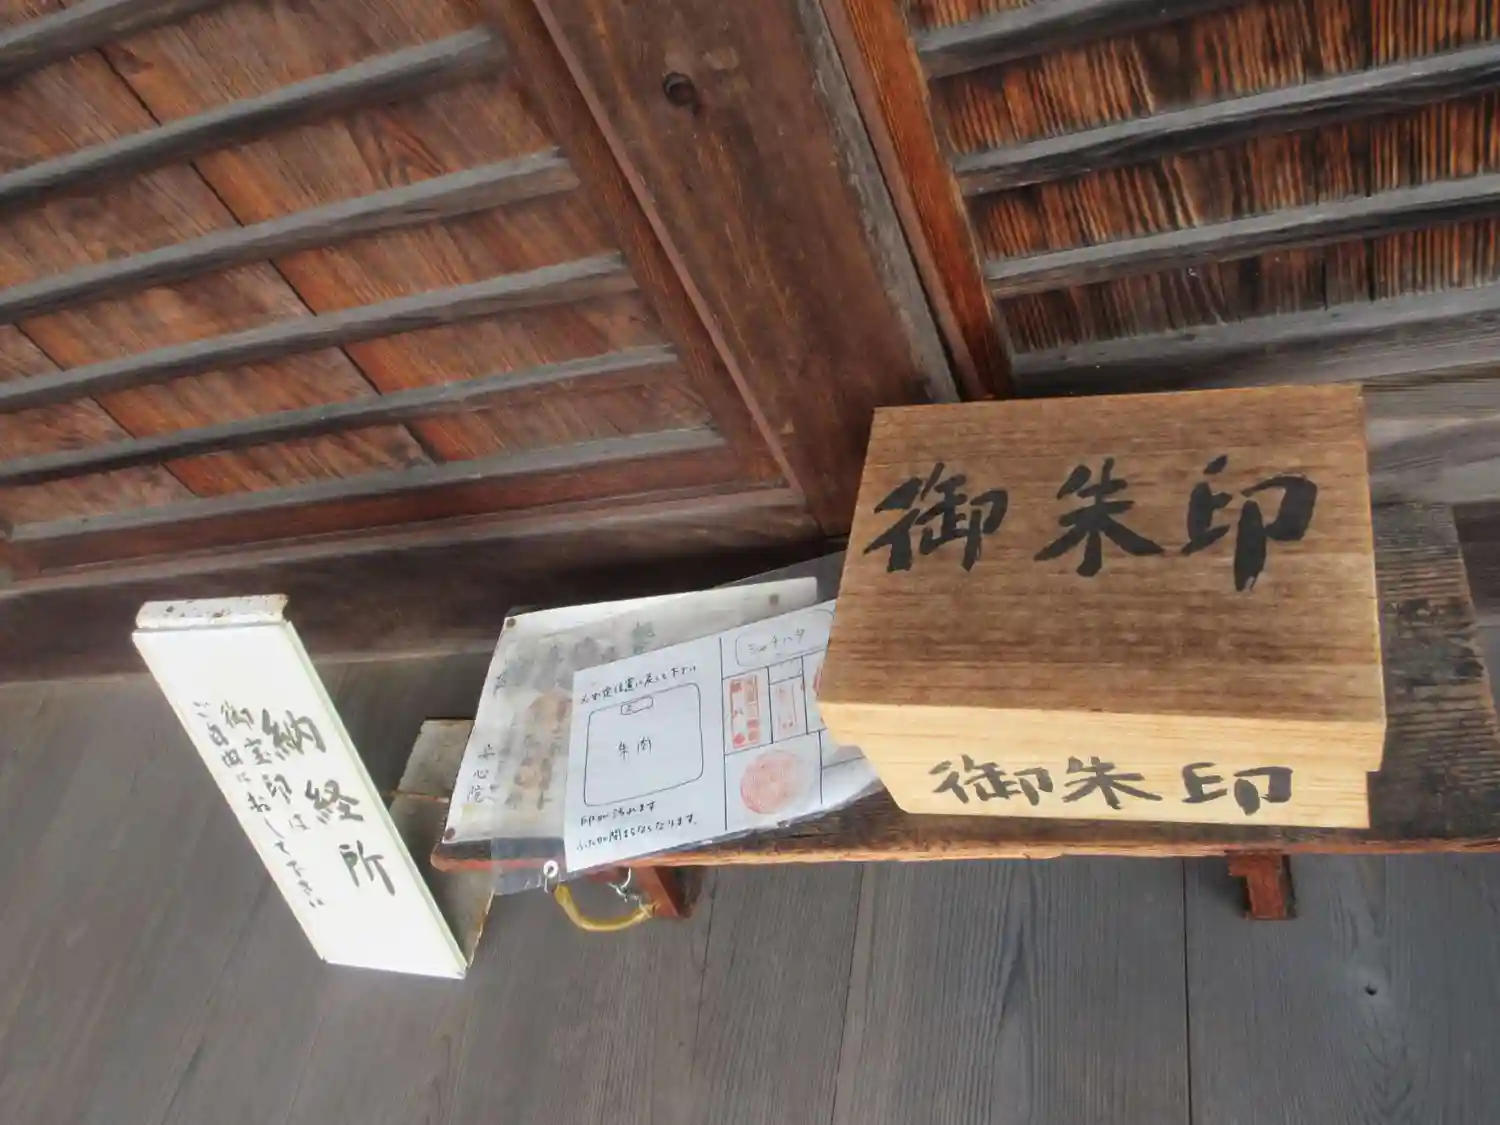 御朱印
御朱印
納経所
御宝印は
ご自由におして下さい
必ず定位置に戻して下さい
朱肉
印が汚れます
ふたが閉まらなくなります。
シャチハタ